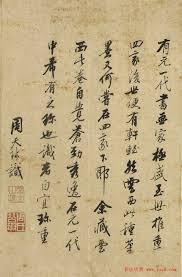 有元一代書畫家極盛世推重
四家後世便有軒輊然雲西此種筆
墨又何嘗在四家下耶余藏雲
西此卷自覺蒼勁秀逸元一代
中希有之也識者自宜珍重
周天球識